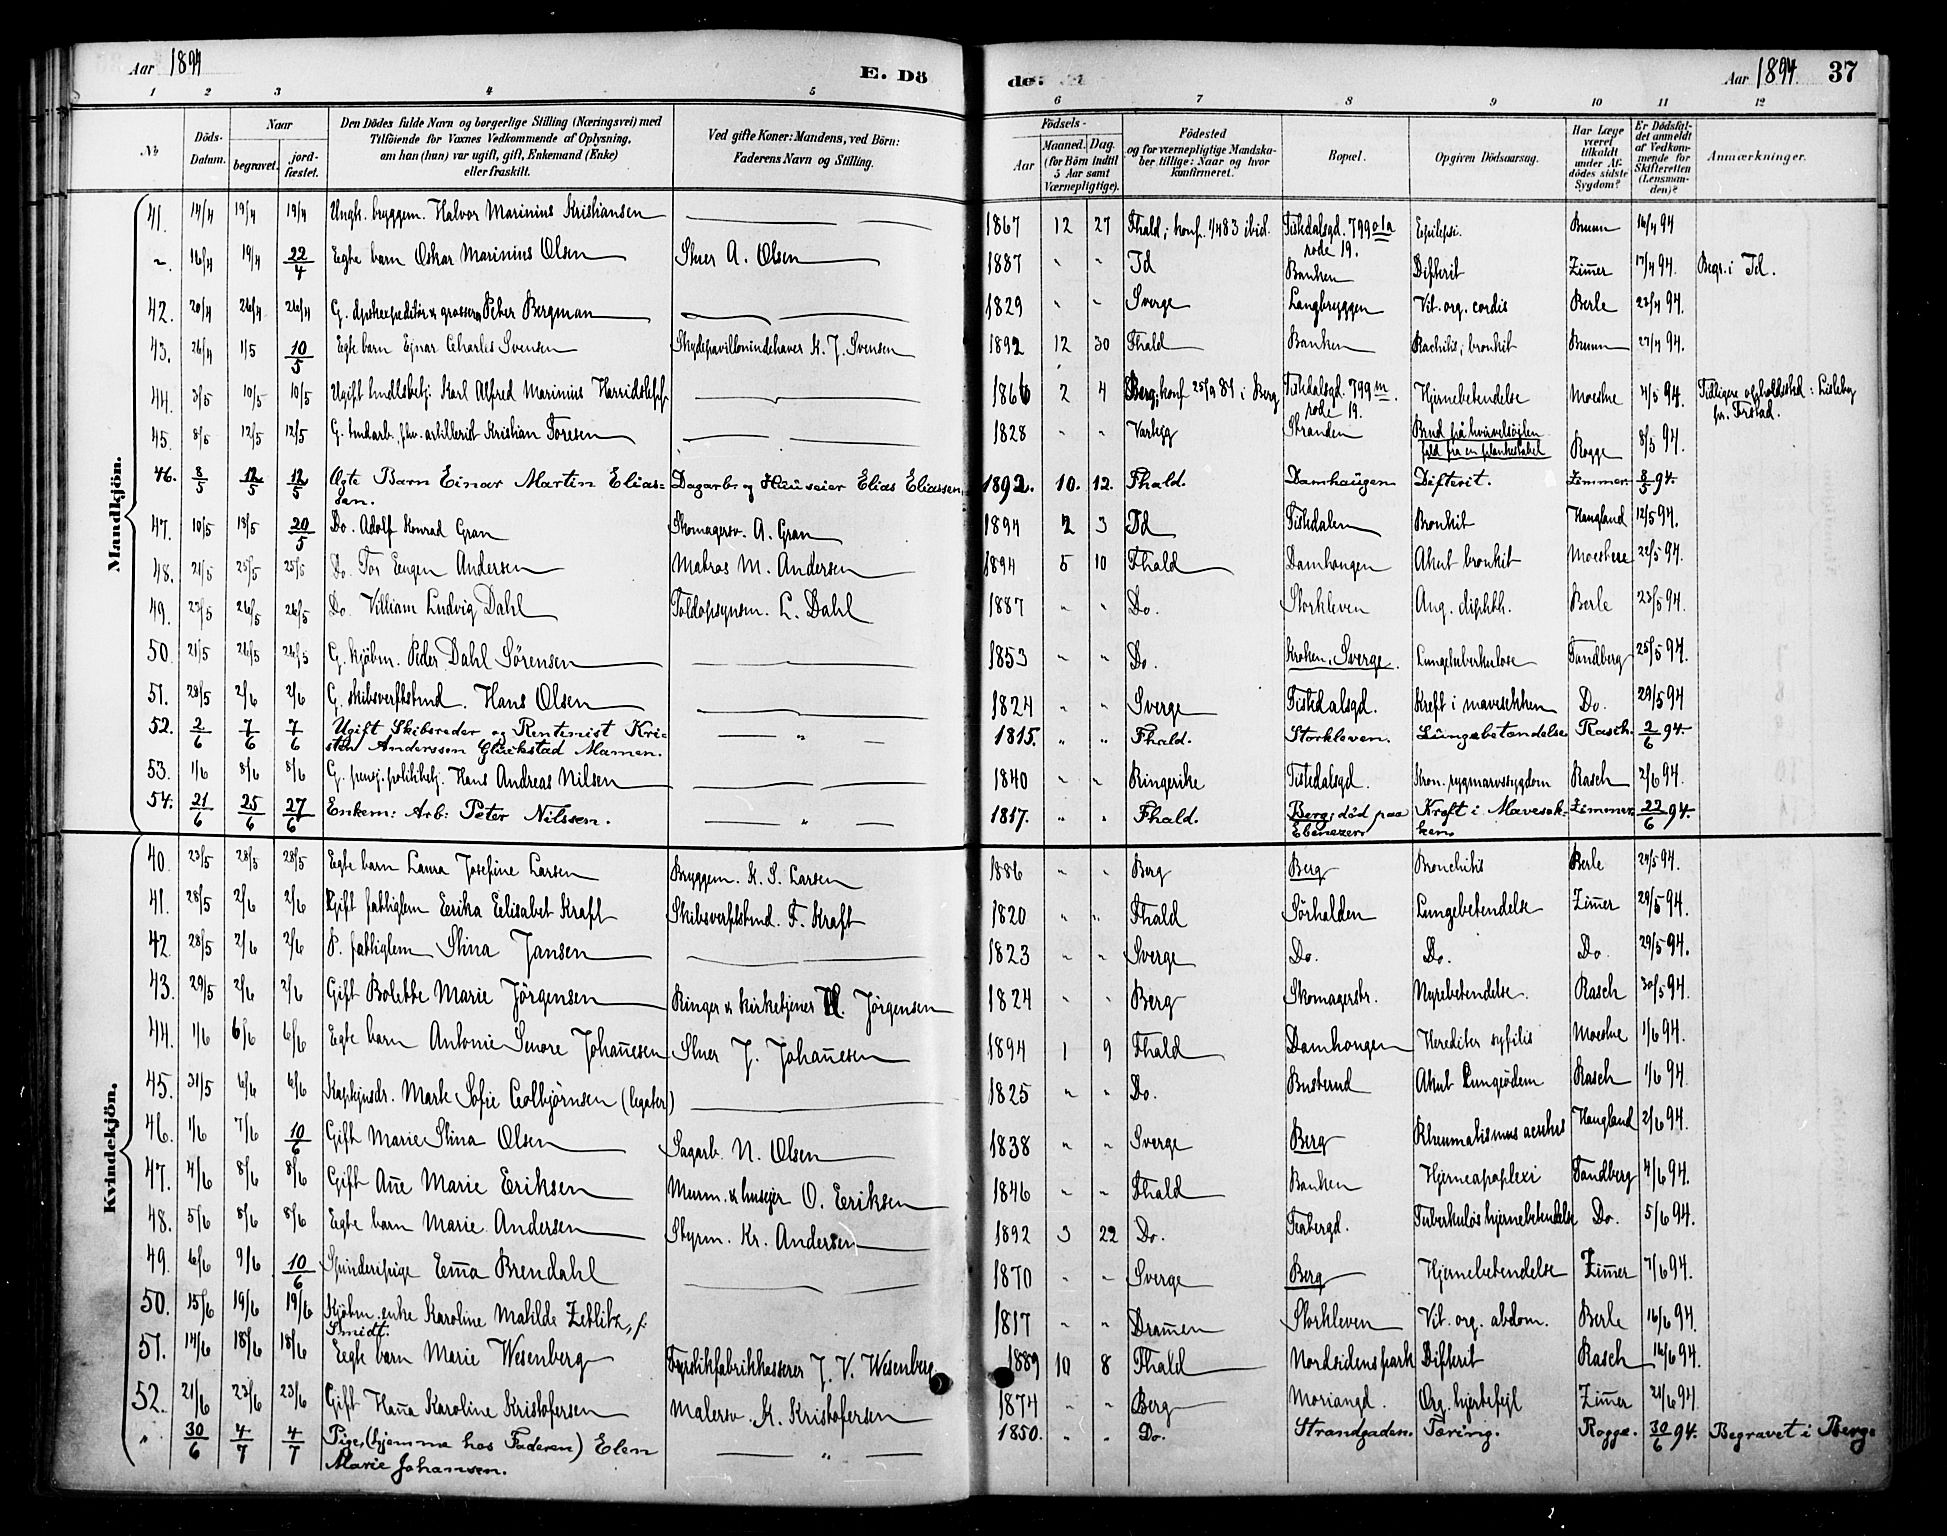 Aar 1894
E. Dö
de:
Aar 1894.
37
1 2 3 4 5 6 7 8 9 10 11 12
No
Döds-Datum.
Naar
begravet. jord-fæstet.
Den Dödes fulde Navn og borgerlige Stilling (Næringsvei) med
Tilföiende for Voxnes Vedkommende af Oplysning,
om han (hun) var ugift, gift, Enkemand (Enke)
eller fraskilt.
Ved gifte Koner: Mandens, ved Börn:
Faderens Navn og Stilling.
Födsels-
Aar
Maaned. Dag.
(for Börn indtil
5 Aar samt
Værnepligtige).
Födested
og for værnepligtige Mandska-
ber tillige: Naar og hvor
konfirmeret.
Bopæl.
Opgiven Dödsaarsag.
Har Læge
været
tilkaldt
under Af-
dödes sidste
Sygdom?
Er Dödsfal-
det anmeldt
af Vedkom-
mende for
Skifteretten
(Lensman-
den)?
Anmærkninger.
Mandkjön.
41. 14/4 19/4 19/4 Ungk. bryggem. Halvor Marinius Kristiansen 1867 12 27 Fhald; konf. 1/4 83 ibid. Tistedalsgd. 799 o1a rode 19. Epilepsi. Bruun 16/4 94
". 16/4 19/4 22/4 Egte barn Oskar Marinius Olsen Stuer A. Olsen 1887 " " Id Banken Difterit Zimer 17/4 94. Begr. i Id.
42. 20/4 26/4 26/4 G. & grosserer Peter Bergman 1829 " " Sverge Langbryggen Vit. org. cordis Berle 23/4 94.
43. 26/4 1/5 10/5 Egte barn Ejnar Charles Svensen Skydepavillonindehaver K. J. Svensen 1892 12 30 Fhald Banken Rachitis; bronkit Bruun 27/4 94.
44. 3/5 10/5 10/5 Ugift hndlsbetj. Karl Alfred Marinius 1866 2 4 Berg; konf 25/9 81 i Berg Tistedalsgd. 799 m. rode 19. Hjernebetendelse Moestue 4/5 94. Tidligere opholdssted: Lisleby pr. Frstad.
45. 8/5 12/5 12/5 G. artillerist Kristian Toresen 1828 " " Varteig Stranden Brud på hvirvelsöjlen fald fra en plankestabel Rogge 8/5 94.
46. 8/5 12/5 12/5 Ægte Barn Einar Martin Elias-
sen. Dagarb. og Huuseier Elias Eliassen. 1892. 10. 12. Fhald. Damhaugen Difterit. Zimmer. 8/5 94.
47. 10/5 18/5 20/5 Do. Adolf Konrad Gran Skomagersv. A. Gran 1894 2 3 Id Tistedalen Bronkit Haugland 12/5 94.
48. 21/5 25/5 25/5 Do. Tor Eugen Andersen Matros M. Andersen 1894 5 10 Fhald Damhougen Akut bronkit Moestue 22/5 94.
49. 23/5 26/5 26/5 Do. Villiam Ludvig Dahl Toldopsynsm. L. Dahl 1887 " " Do. Storkleven Ang. diphth. Berle 23/5 94.
50. 21/5 26/5 26/5 G. kjöbm. Peder Dahl Sörensen 1853 " " Do. Kroken, Sverge. Lungetuberkulose Tandberg 25/5 94.
51. 28/5 2/6 2/6 G. skibsverftstmd. Hans Olsen 1824 " " Sverge Tistedalsgd. Kreft i mavesekken Do. 29/5 94
52. 2/6 7/6 7/6 Ugift Skibsreder og Rentenist Kri-
sten Anderssen Glückstad Mamen. " 1815. " " Fhald. Storkleven. Lungebetændelse Rasch. 2/6 94.
53. 1/6 8/6 8/6 G. pensj. politibetj. Hans Andreas Nilsen 1840 " " Ringerike Tistedalsgd. Kron. rygmarvssygdom Rasch 2/6 94.
54. 21/6 25/6 27/6 Enkem: Arb: Peter Nilssen. " 1817. " " Fhald. Berg; død paa Ebenezer. Kræft i Mavesæk-
ken. Zimmer. 22/6 94.
Kvindekjön.
40. 23/5 28/5 28/5 Egte barn Laura Josefine Larsen Bryggem. K. S. Larsen 1886 " " Berg Berg Bronchitis Berle 24/5 94.
41. 28/5 2/6 2/6 Gift fattiglem Erika Elisabet Kraft Skibsverftstmd. F. Kraft 1820 " " Fhald Sörhalden Lungebetendelse Zimer 29/5 94.
42. 28/5 2/6 2/6 P. fattiglem Stina Jansen 1823 " " Sverge Do. Do. Do. 29/5 94.
43. 29/5 2/6 2/6 Gift Bolette Marie Jörgensen Ringer & kirketjener H. Jörgensen 1824 " " Berg Skomagerstr. Nyrebetendelse. Rasch 30/5 94.
44. 1/6 6/6 6/6 Egte barn Antonie Johañesen Stuer J. Johañesen 1894 1 9 Fhald Damhougen Hereditær syfilis Moestue 1/6 94.
45. 31/5 6/6 6/6 Kaptejnsdr. Marte Sofie Colbjörnsen (legater) 1825 " " Do. Busterud Akut Lungeödem Rasch 1/6 94
46. 1/6 7/6 10/6 Gift Marie Stina Olsen Sagarb. N. Olsen 1838 " " Sverge Berg Rheumatismus Haugland 2/6 94.
47. 4/6 8/6 8/6 Gift Añe Marie Eriksen Murm. & husejer O. Eriksen 1846 " " Fhald Banken Hjerneapoplexi Tandberg 4/6 94.
48. 5/6 8/6 8/6 Egte barn Marie Andersen Styrm. Kr. Andersen 1892 3 22 Do. Tuberkulös hjernebetendelse Do. 5/6 94.
49. 6/6 9/6 10/6 Spinderipige Ema Brendahl 1870 " " Sverge Berg Hjernebetendelse Zimer 7/6 94.
50. 15/6 19/6 19/6 Kjöbm. enke Karoline Matilde Zetlitz, f.
Smidt. 1817 " " Dramen Storkleven Vit. org. abdom. Berle 16/6 94.
51. 14/6 18/6 18/6 Egte barn Marie Wesenberg Fyrstikfabrikkasserer J. V. Wesenberg 1889 10 8 Fhald Nordsidens park Difterit Rasch 16/6 94.
52. 21/6 23/6 23/6 Gift Haña Karoline Kristofersen Malersv. K. Kristofersen 1874 " " Berg Moriangd. Org. hjertefejl Zimer 21/6 94.
" 30/6 4/7 4/7 Pige, (hjemme hos Faderen) Elen
Marie Johansen. " 1850. " " Do. Strandgaden. Tæring. Rogge. 30/6 94. Begravet i Berg.